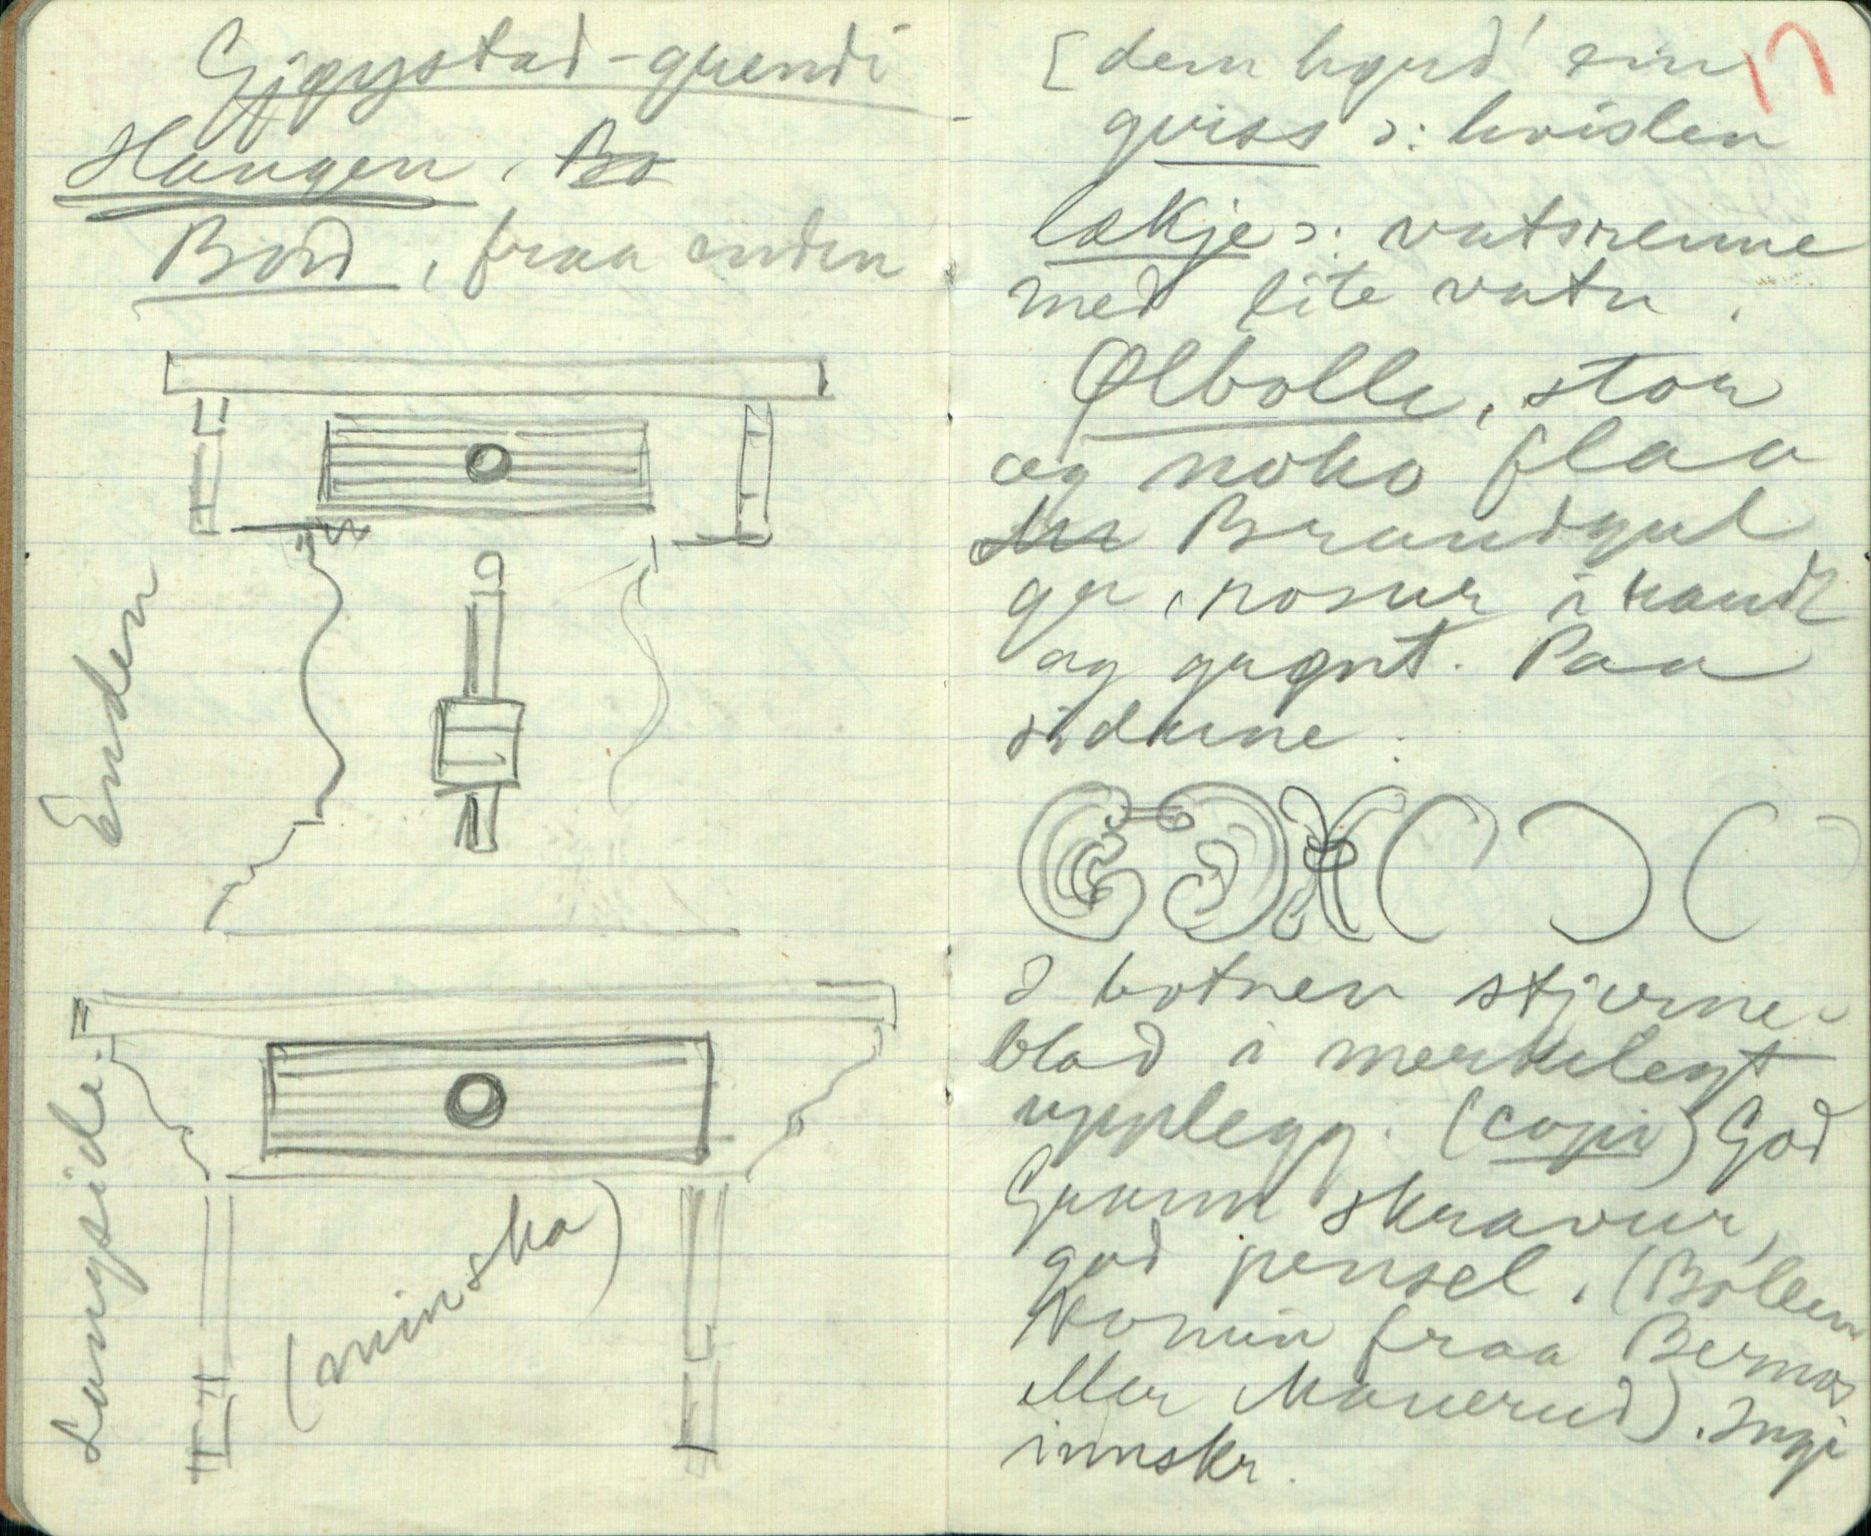 Gjøystad-grendi
Haugen, Bo
Bord, fraa enden
Enden
Langside.
(minska)
[dem høyrd' ein
gviss ɔ: hvislen
lækje ɔ: vatsrenne
med lite vatn.
Ølbolle, stor
og noko flaa
Brandgul
ger, rosur i rand
og grønt. Paa
sidune:
I botnen stjerne-
blad i merkelegt
upplegg. (copi) God
Graam skravur,
god pensel. (Bollen
komin fraa Bermos
eller Manerud). Ingi
innskr.